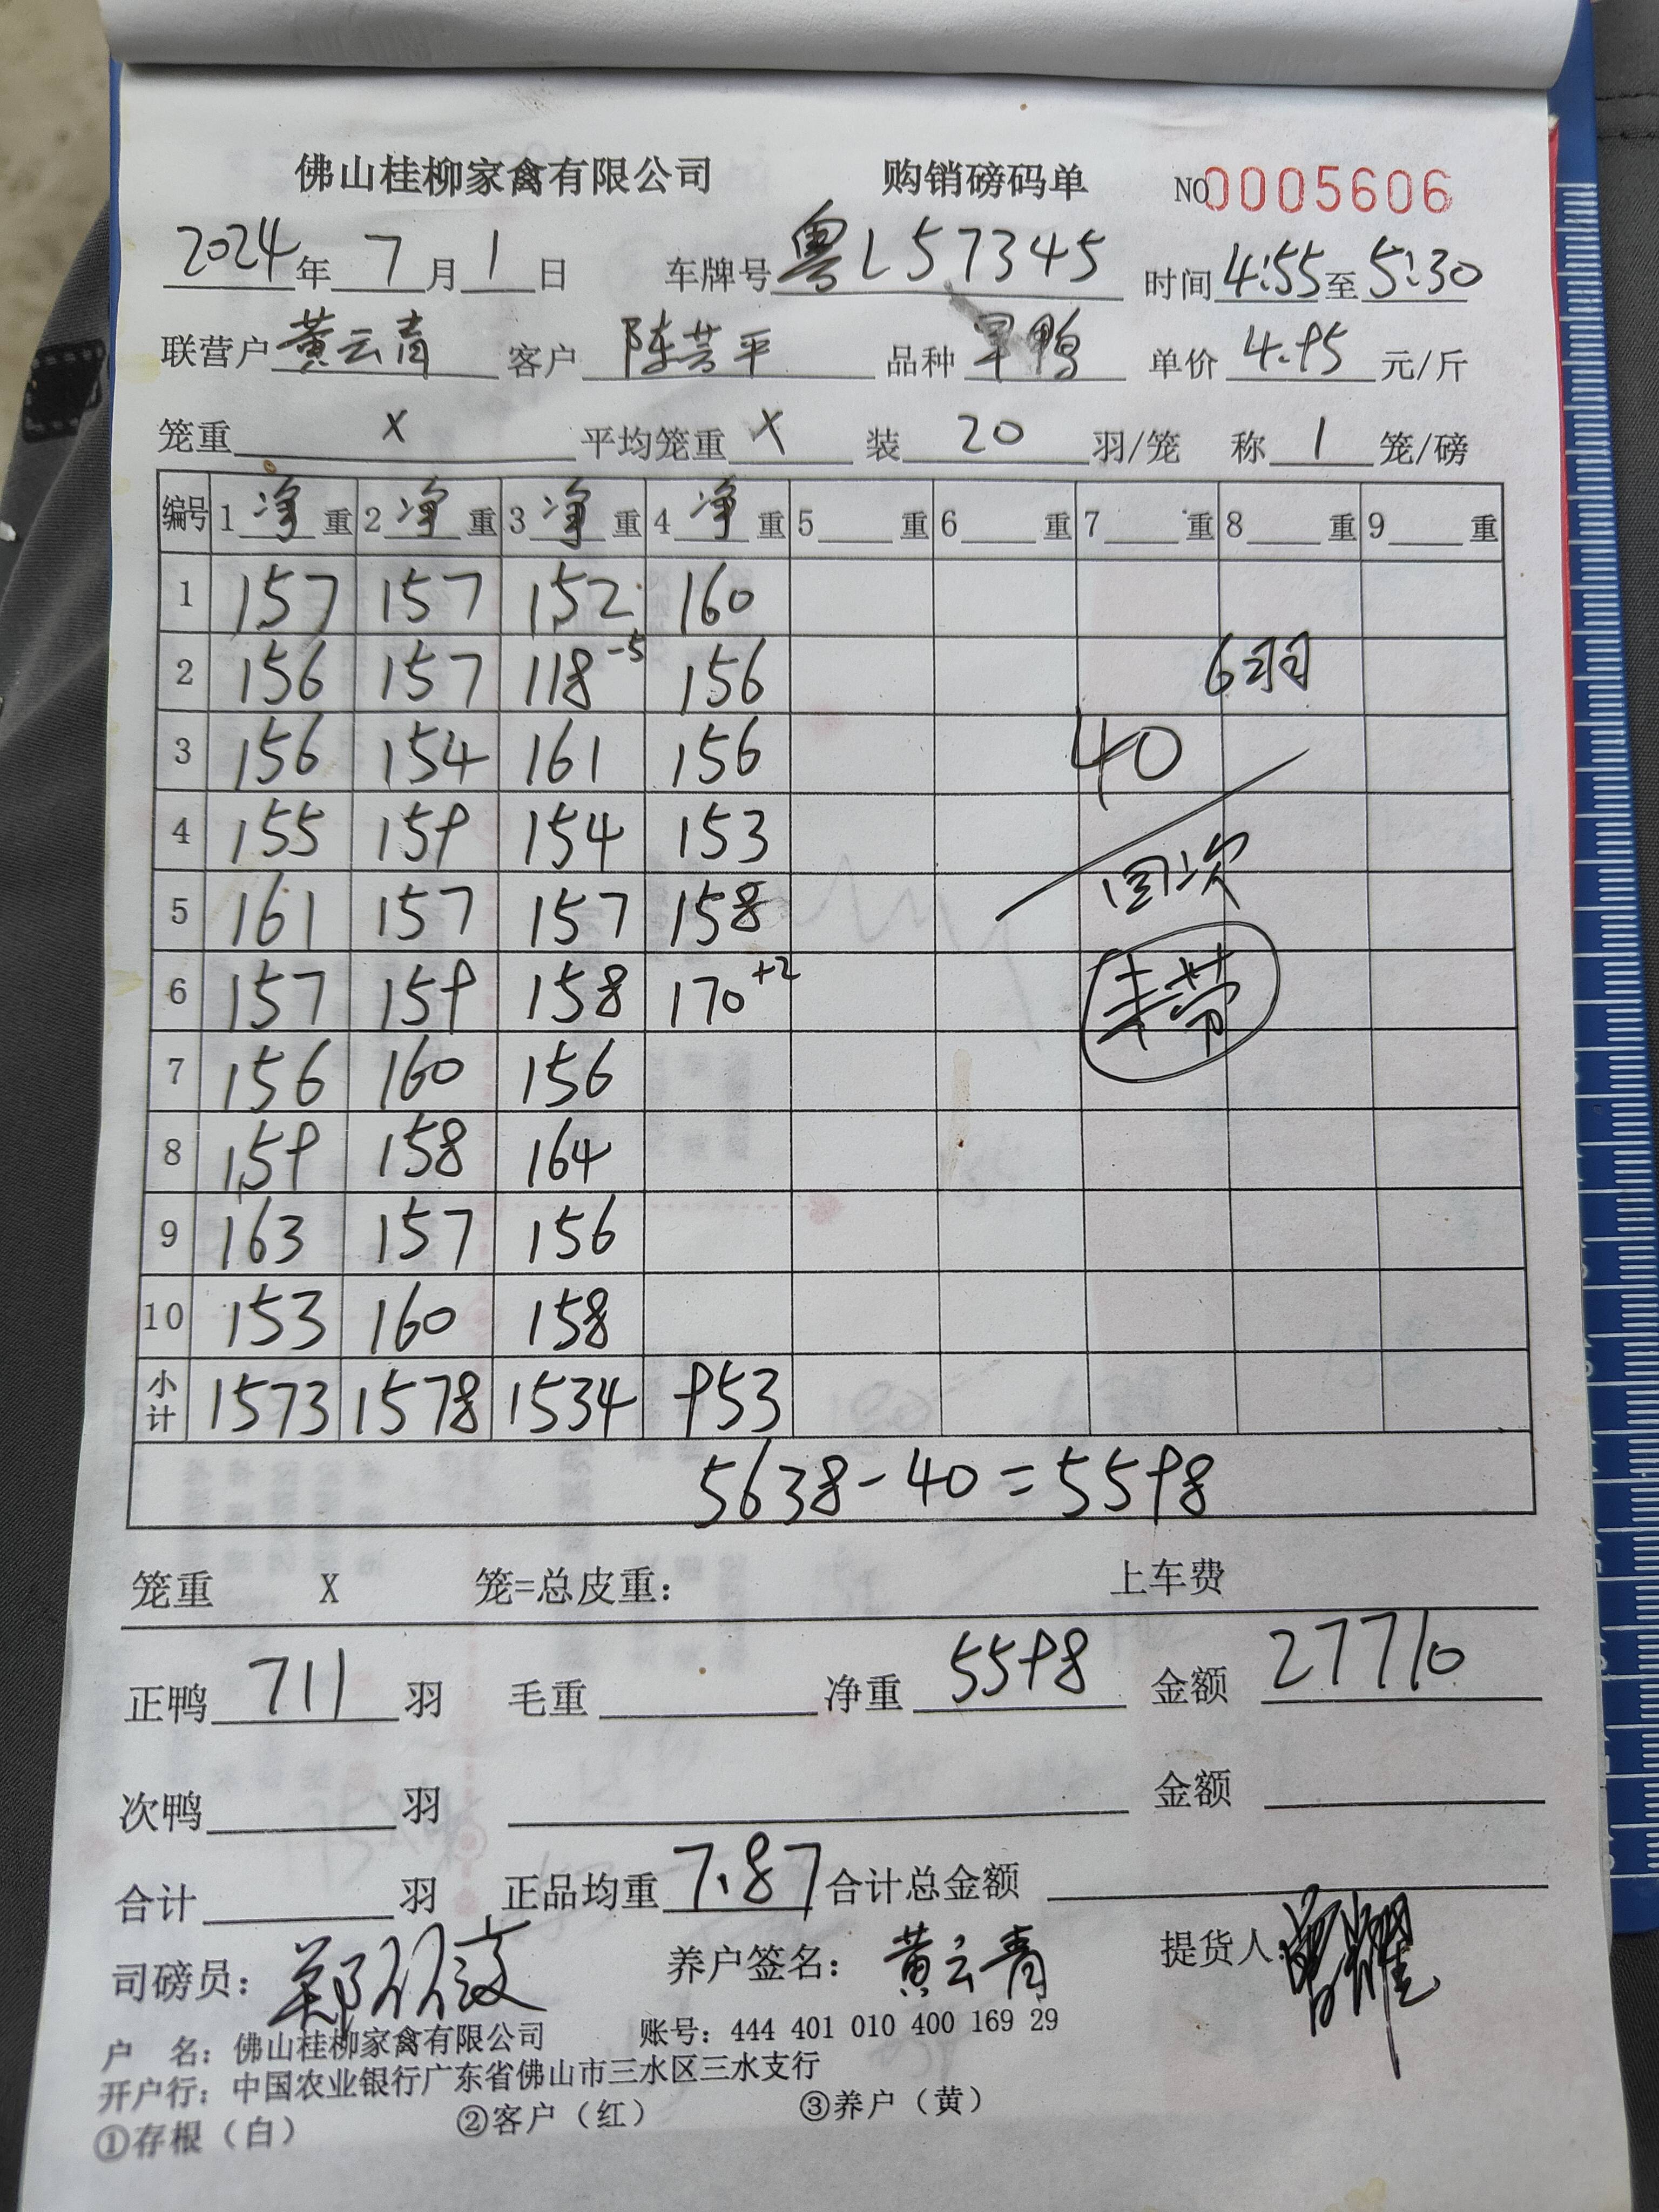 佛山桂柳家禽有限公司 购销磅码单 NO 0005606
2024年 7月 1日 车牌号 粤L57345 时间 4:55至5:30
联营户 黄云青 客户 陈芸平 品种 旱鸭 单价 4.95 元/斤
笼重 X 平均笼重 X 装 20 羽/笼 称 1 笼/磅
编号 1净重 2净重 3净重 4净重 5重 6重 7重 8重 9重
1 157 157 152 160
2 156 157 118-5 156 6羽
3 156 154 161 156 40
4 155 159 154 153 回次
5 161 157 157 158
6 157 159 158 170+2
7 156 160 156
8 159 158 164
9 163 157 156
10 153 160 158
小计 1573 1578 1534 953
5638-40=5598
笼重 X 笼=总皮重: 上车费
正鸭 711 羽 毛重 净重 5598 金额 27710
次鸭 羽 金额
合计 羽 正品均重 7.87 合计总金额
司磅员: 养户签名: 黄云青 提货人:
户 名: 佛山桂柳家禽有限公司 账号: 444 401 010 400 169 29
开户行: 中国农业银行广东省佛山市三水区三水支行
①存根（白） ②客户（红） ③养户（黄）